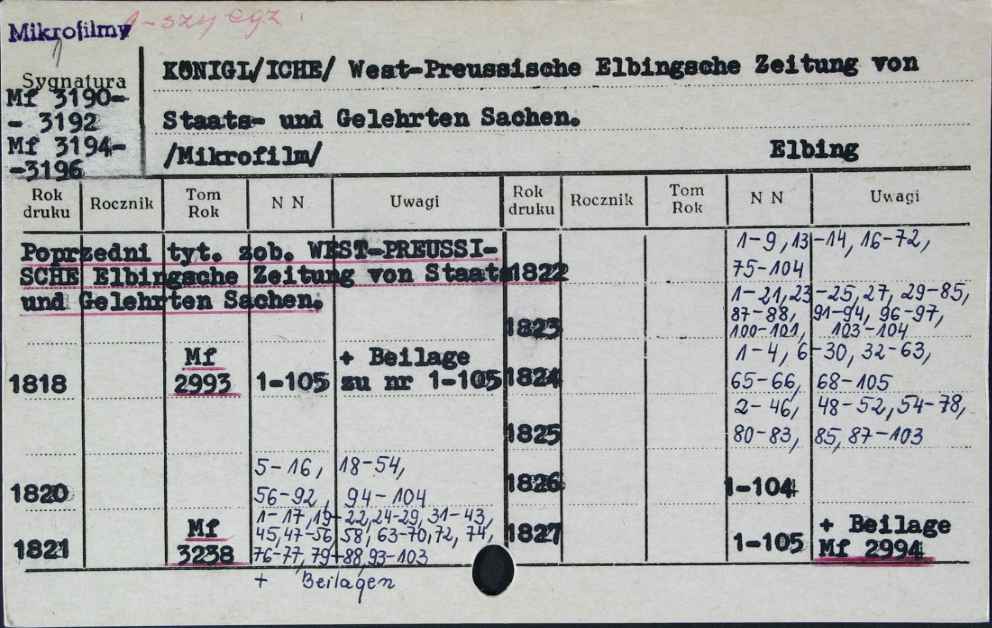 Mikrofilmy 1-szy egz.
Sygnatura
Mf 3190-
- 3192
Mf 3194-
-3196
KÖNIGL/ICHE/ West-Preussische Elbingsche Zeitung von
Staats- und Gelehrten Sachen.
/Mikrofilm/ Elbing
Rok druku Rocznik Tom Rok N N Uwagi Rok druku Rocznik Tom Rok N N Uwagi
Poprzedni tyt. zob. WEST-PREUSSI-
SCHE Elbingsche Zeitung von Staats
und Gelehrten Sachen.
Mf + Beilage
1818 2993 1-105 zu nr 1-105
5-16, 18-54,
1820 56-92, 94-104
1-17, 19-22, 24-29, 31-43,
Mf 45, 47-56, 58, 63-70, 72, 74,
1821 3238 76-77, 79-88, 93-103
+ Beilagen
1-9, 13-14, 16-72,
1822 75-104
1-21, 23-25, 27, 29-85,
87-88, 91-94, 96-97,
1823 100-101, 103-104
1-4, 6-30, 32-63,
1824 65-66, 68-105
2-46, 48-52, 54-78,
1825 80-83, 85, 87-103
1826 1-104
+ Beilage
1827 1-105 Mf 2994